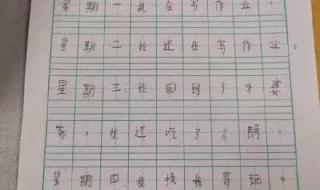 星期一我在写作业。
星期二我还在写作业。
星期三，我回到了外婆
家，我还吃了火锅。
星期四，我